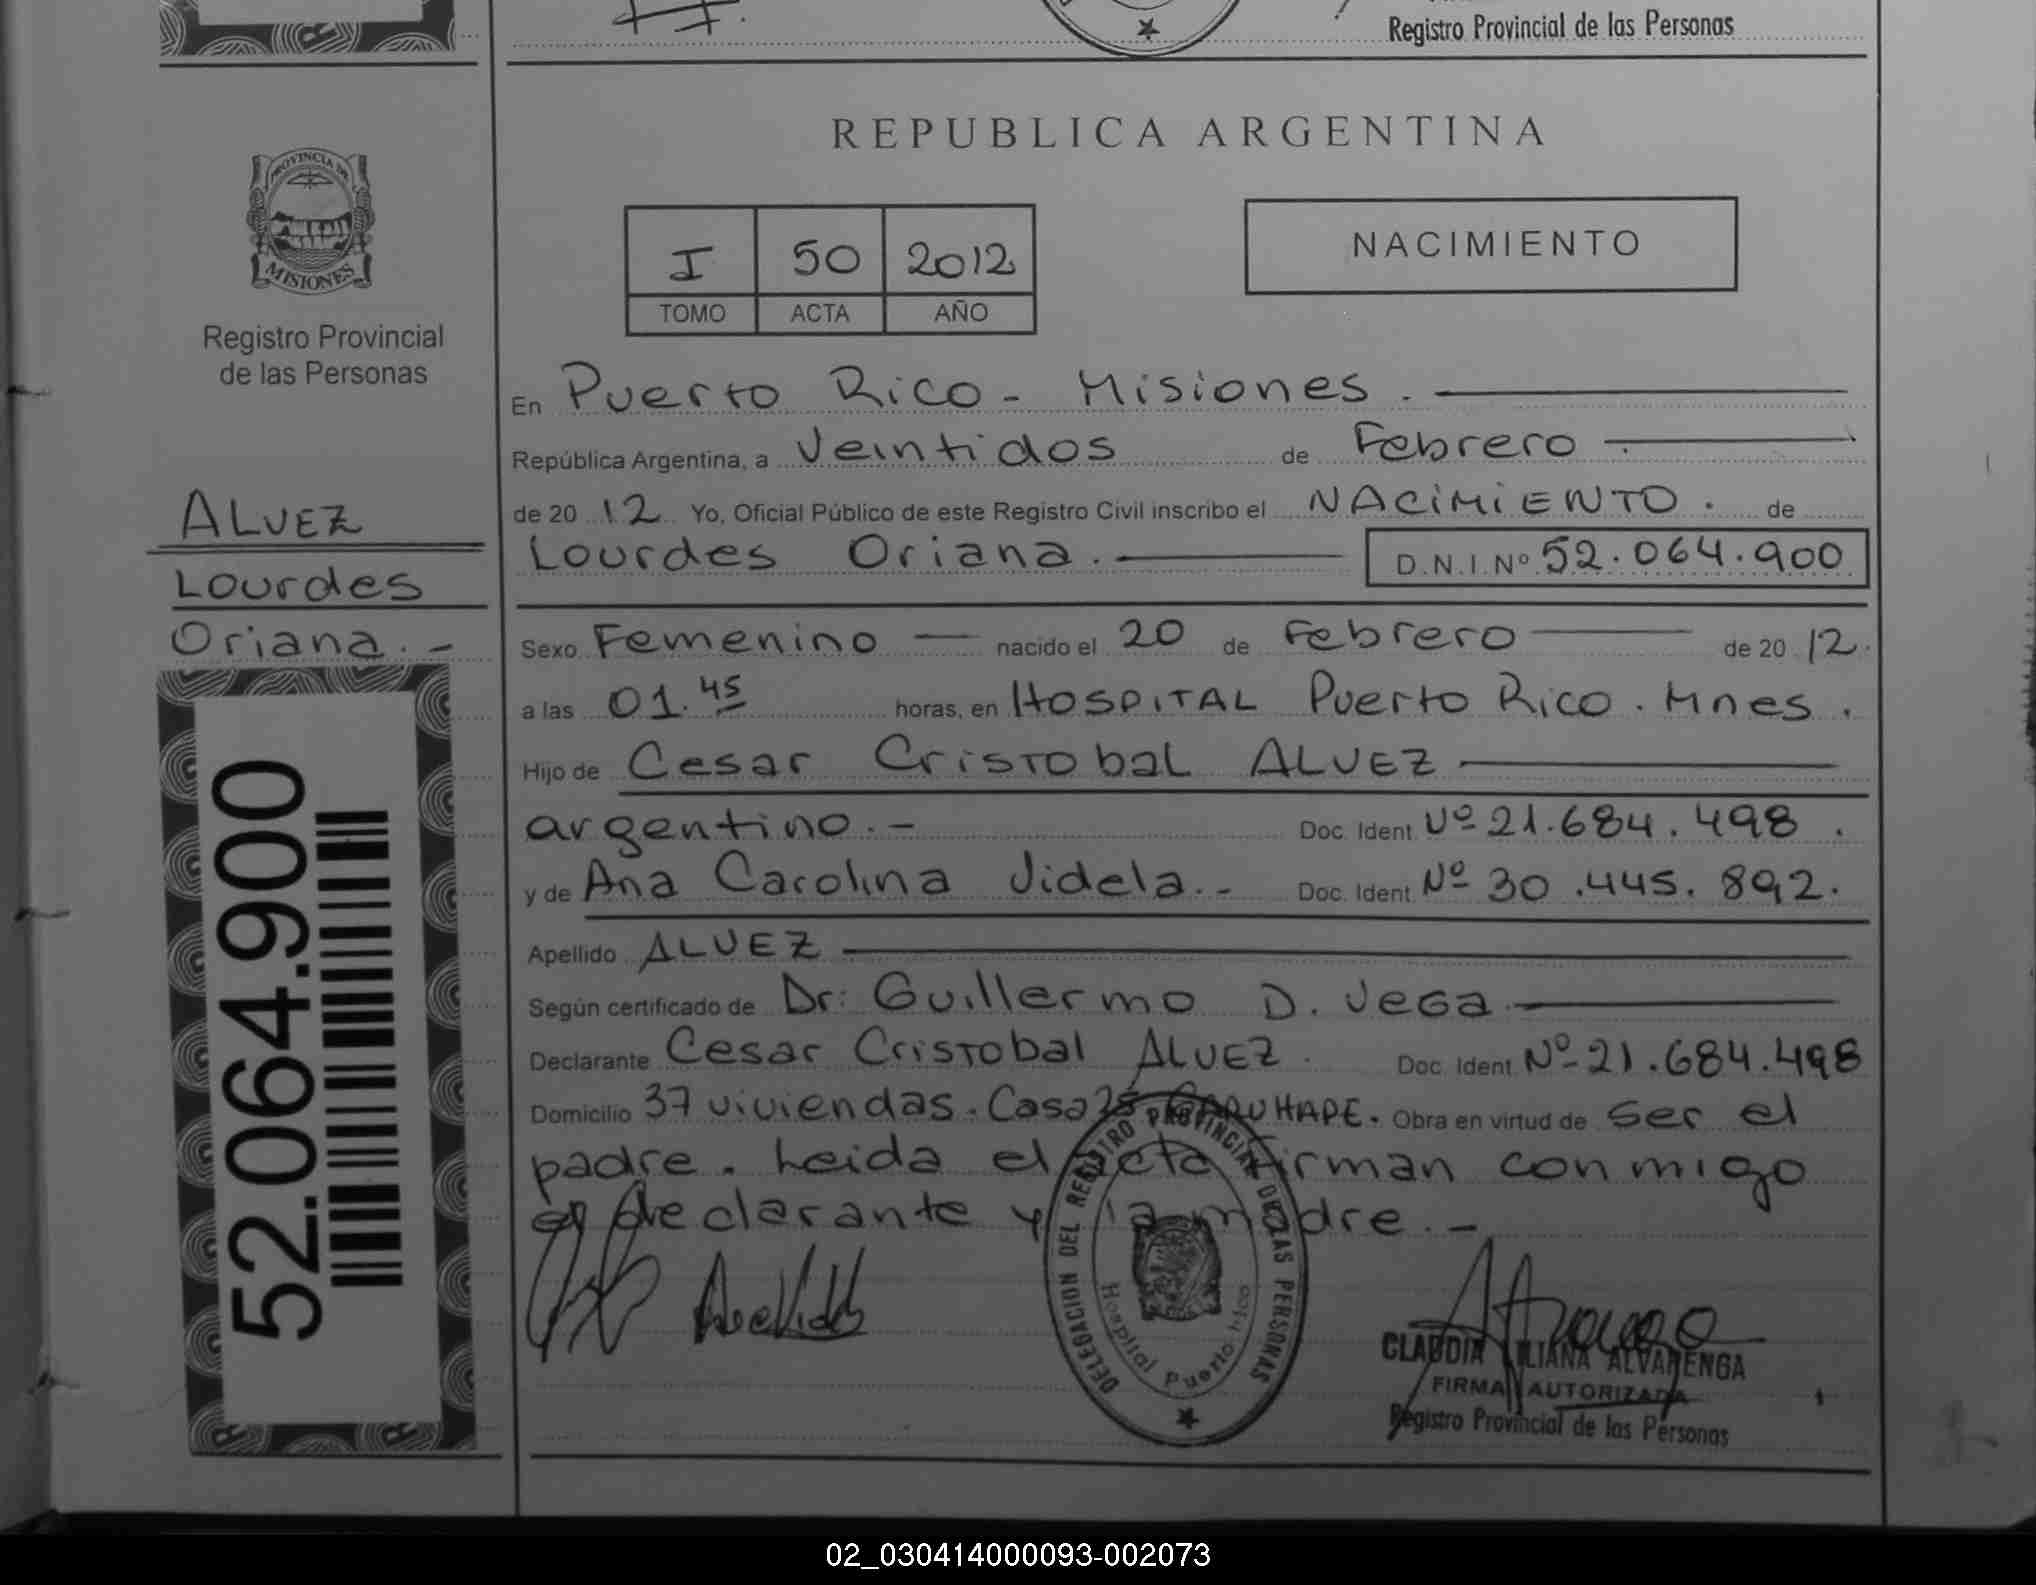 Registro Provincial de las Personas
REPUBLICA ARGENTINA
PROVINCIA DE
MISIONES
Registro Provincial
de las Personas
I 50 2012
TOMO ACTA AÑO
NACIMIENTO
En Puerto Rico - Misiones.
República Argentina, a Veintidos de Febrero
de 20 12 Yo, Oficial Público de este Registro Civil inscribo el NACIMIENTO. de
Lourdes Oriana. D.N.I.Nº 52.064.900
ALVEZ
Lourdes
Oriana.-
Sexo Femenino nacido el 20 de Febrero de 20 12.
a las 01.45 horas, en HOSPITAL Puerto Rico. Mnes.
Hijo de Cesar Cristobal ALVEZ
argentino.- Doc. Ident. Nº 21.684.498.
y de Ana Carolina Videla.- Doc. Ident. Nº 30.445.892.
Apellido ALVEZ
Según certificado de Dr: Guillermo D. Vega
Declarante Cesar Cristobal ALVEZ. Doc. Ident. Nº 21.684.498
Domicilio 37 viviendas. Casa 25 GARUHAPE. Obra en virtud de ser el
padre. Leida el acta firman conmigo
el declarante y la madre.-
52.064.900
DELEGACION DEL REGISTRO PROVINCIAL DE LAS PERSONAS
Hospital Puerto Rico
CLAUDIA LILIANA ALVARENGA
FIRMA AUTORIZADA
Registro Provincial de las Personas
02_030414000093-002073